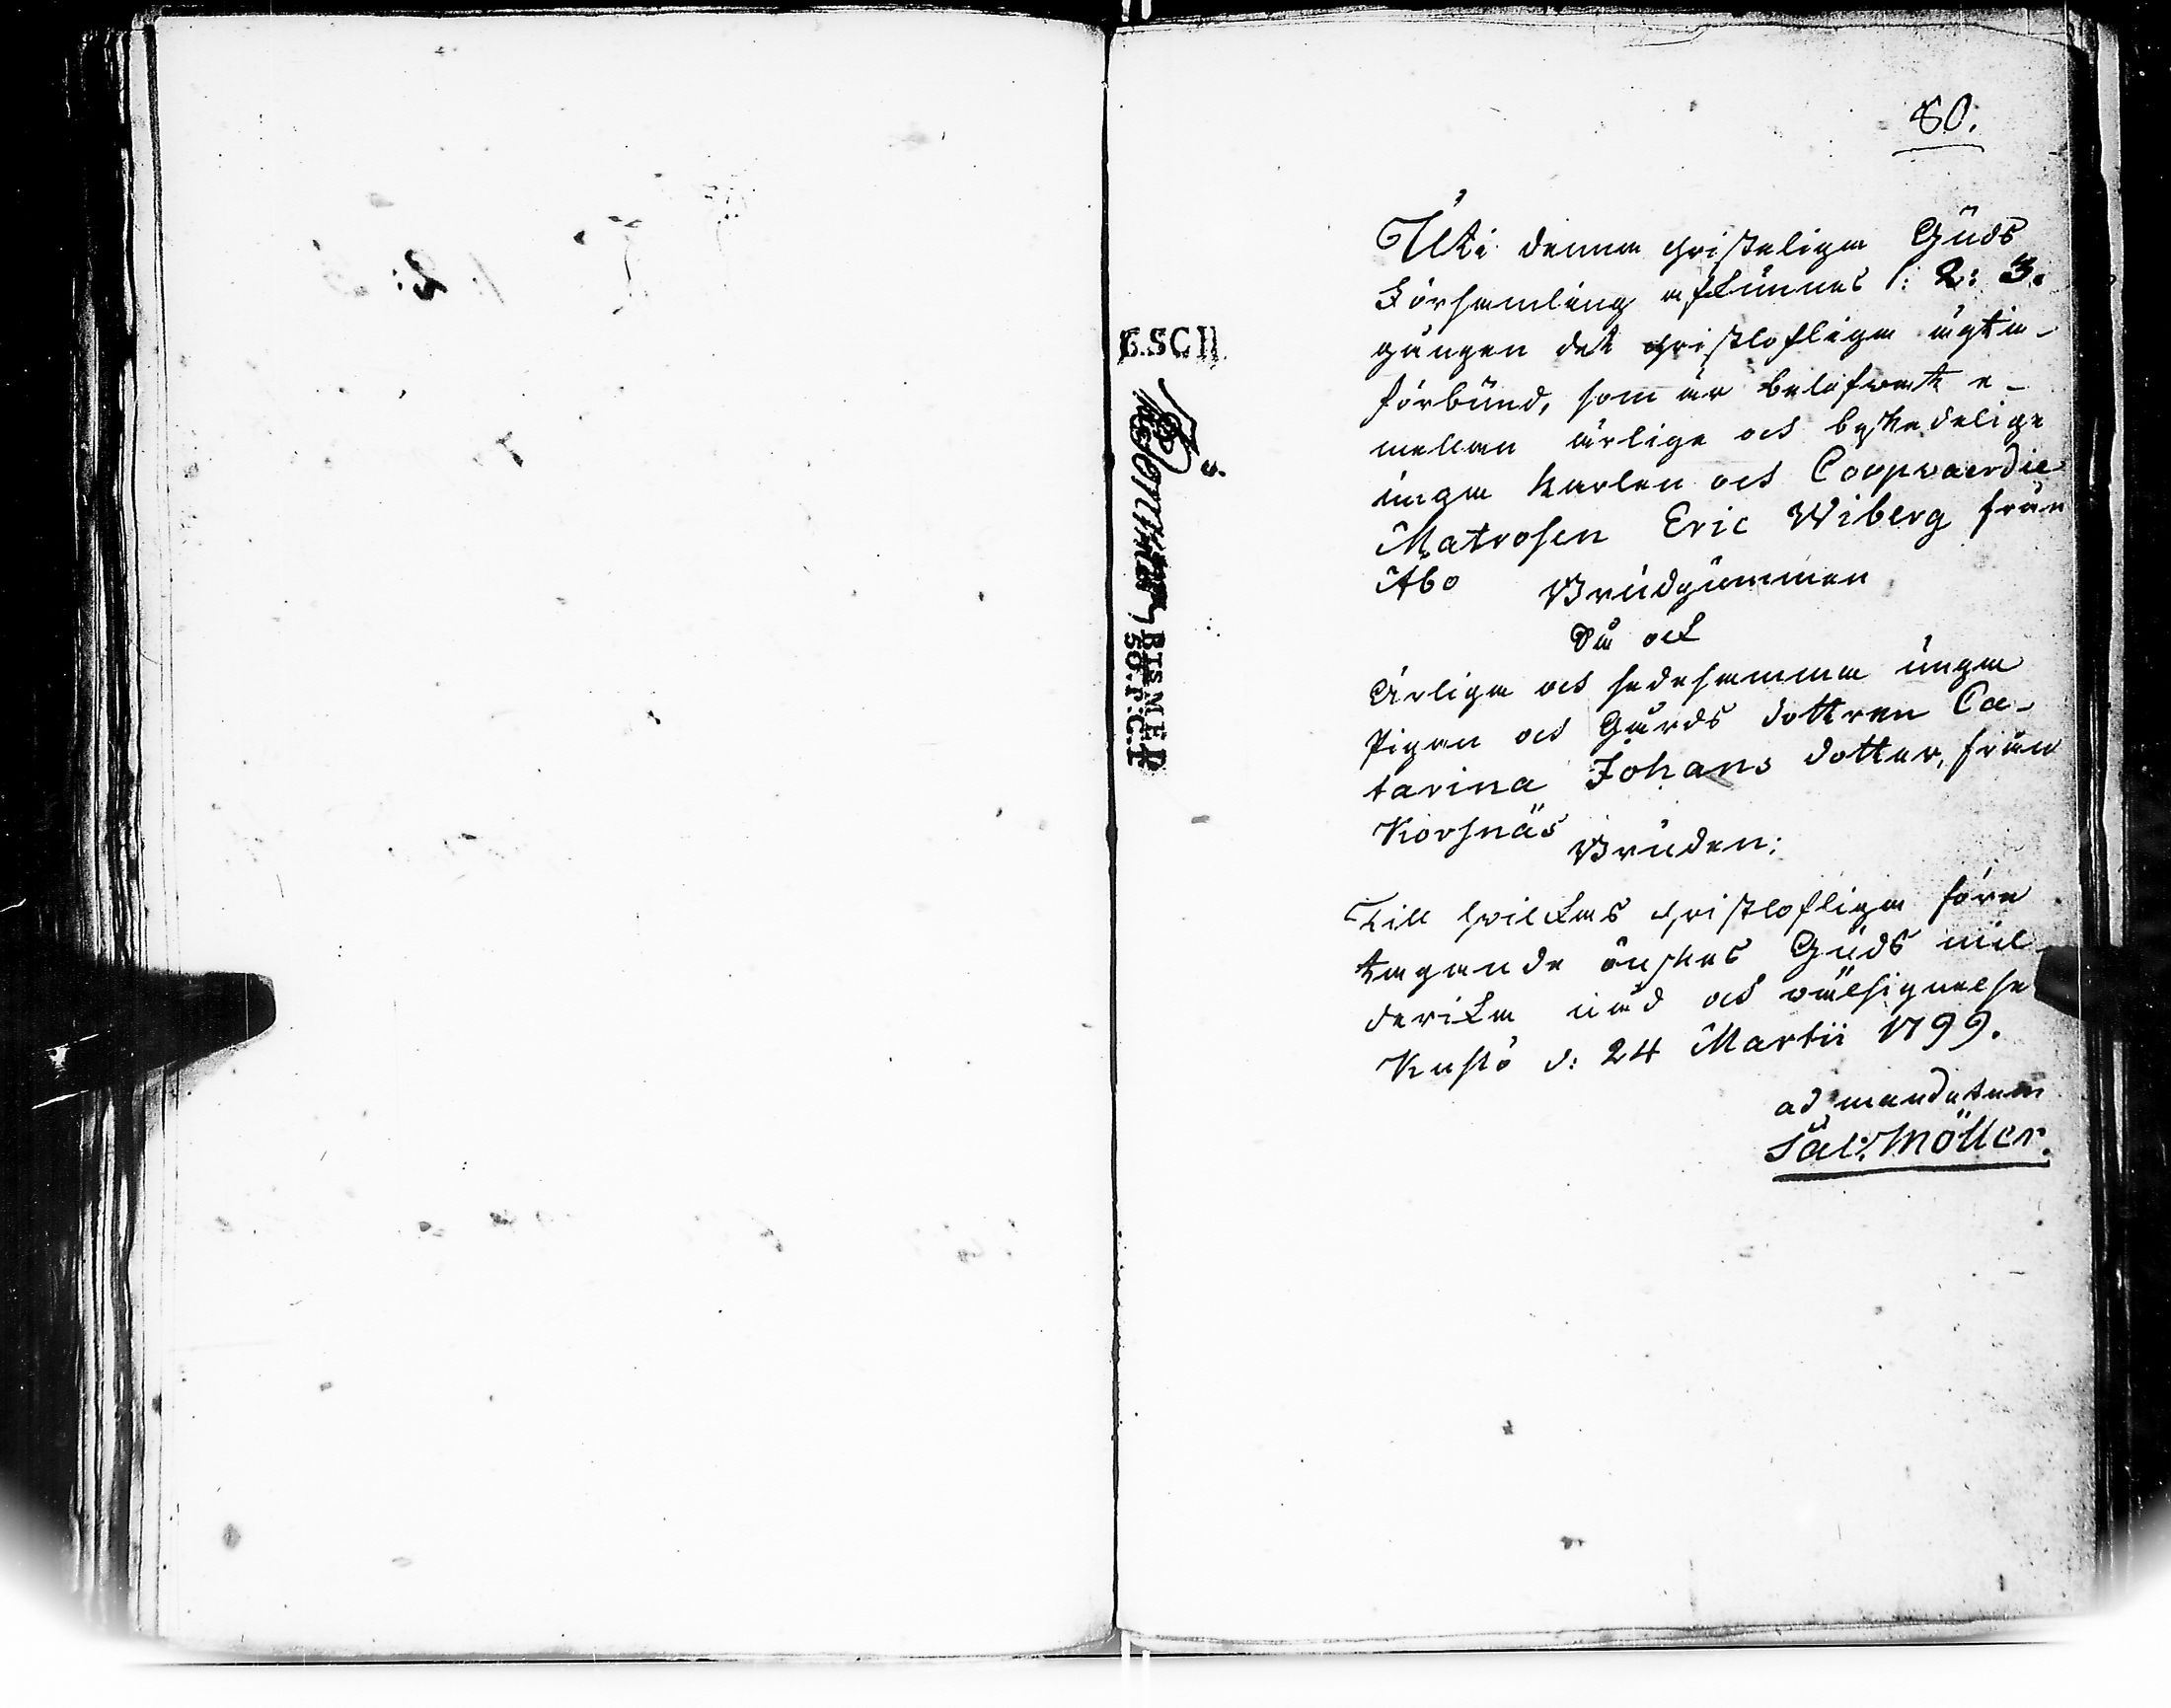 80.
Uti denna christeliga Guds
Församling afkunnas 1: 2: 3.
gången det christlofliga ägta-
förbund, som är belefwat e-
mellan ärlige och beskedelige
unga Karlen och Coopvaerdie
Matrosen Eric Wiberg från
Åbo Brudgummen
Så ock
Ärliga och sedesamma unga
Pigan och Gårds dottren Ca-
tarina Johans dotter, från
Korsnäs
Bruden:
Till hvilkas christlofliga före
tagande önskas Guds mil
derika nåd och välsignelse
Kustö d: 24 Martii 1799.
ad mandatum
Sal: Möller.